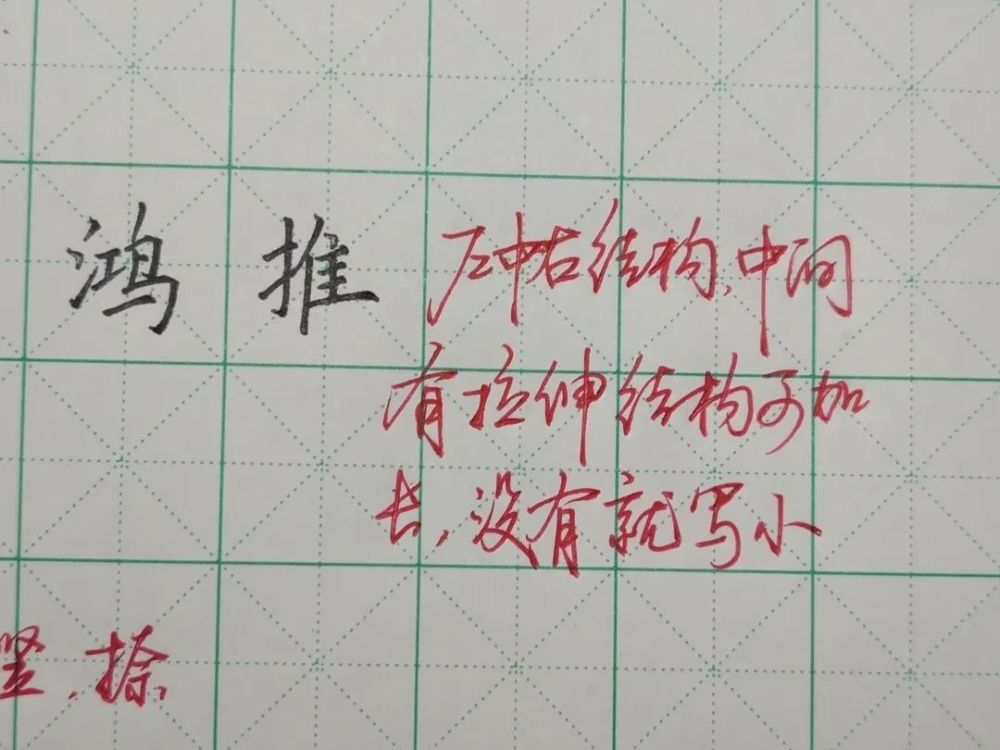 鸿 推 左中右结构,中间
有拉伸结构可加
长,没有就写小
竖,捺,